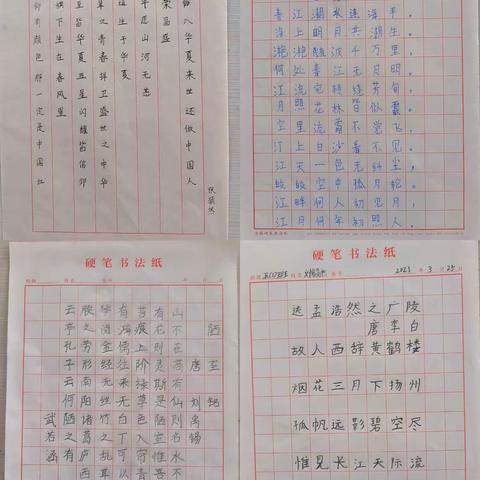 入华夏来世还做中国人
荣昌盛
愿山河无恙
生于华夏
之青春
卫盛世之中华
华夏五星闪耀皆信仰
旗下生在春风里
仰有颜色那一定是中国红
春江潮水连海平,
海上明月共潮生。
滟滟随波千万里,
何处春江无月明。
江流宛转绕芳甸,
月照花林皆似霰。
空里流霜不觉飞,
汀上白沙看不见。
江天一色无纤尘,
皎皎空中孤月轮。
江畔何人初见月,
江月何年初照人。
硬笔书法纸
陋室铭
唐 刘禹锡
山不在高有仙则名水不
有龙则是斯陋室惟吾
苔痕上阶绿草色入帘青
有鸿儒往来无白丁可以
琴阅金经无丝竹之乱耳
之劳形南阳诸葛庐西
云亭孔子云何陋之有
武若涵
硬笔书法纸
2023 3 25
送孟浩然之广陵
唐李白
故人西辞黄鹤楼
烟花三月下扬州
孤帆远影碧空尽
惟见长江天际流